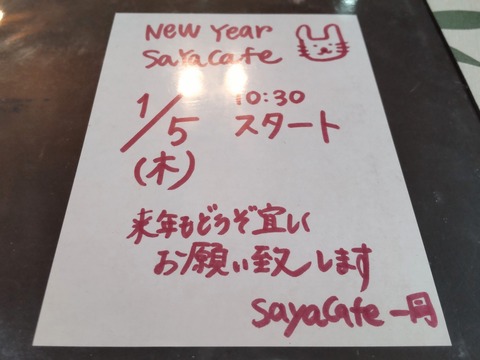 New Year
SaYaCafe
1/5 10:30
(木) スタート
来年もどうぞ宜しく
お願い致します
SayaCafe 一同